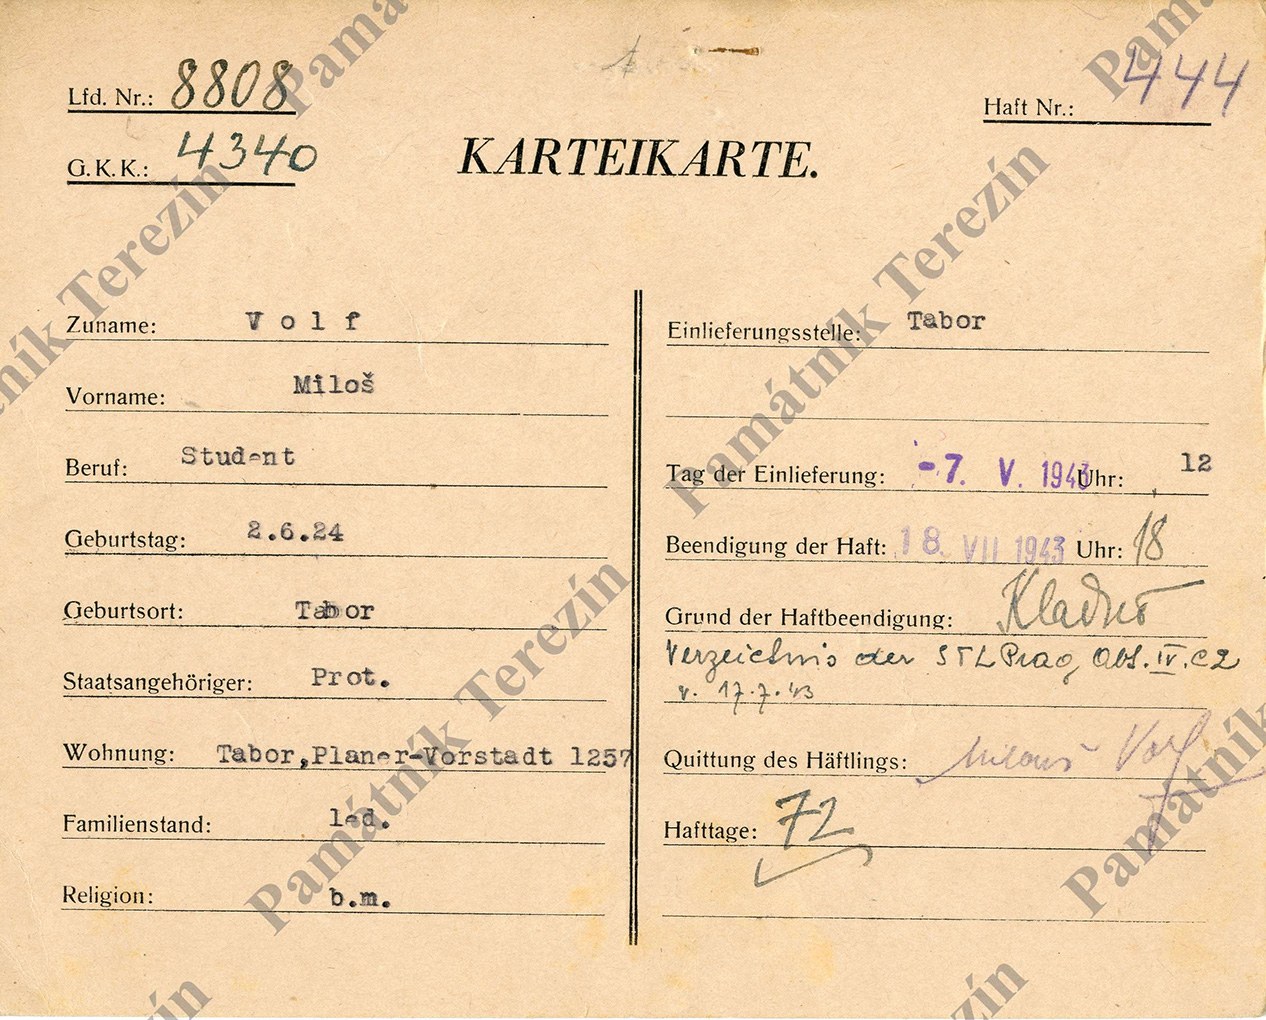 Lfd. Nr.: 8808
Haft Nr.: 444
G. K. K.: 4340
KARTEIKARTE.
Zuname: Volf
Vorname: Miloš
Beruf: Student
Geburtstag: 2.6.24
Geburtsort: Tabor
Staatsangehöriger: Prot.
Wohnung: Tabor,Planer-Vorstadt 1257
Familienstand: led.
Religion: b.m.
Einlieferungsstelle: Tabor
Tag der Einlieferung: -7. V. 1943 Uhr: 12
Beendigung der Haft: 18. VII 1943 Uhr: 18
Grund der Haftbeendigung: Kladno
Verzeichnis der STL Prag, Abt. IV. C 2
v. 17.7.43
Quittung des Häftlings: Miloš Volf
Hafttage: 72
Památník Terezín
Památník Terezín
Památník Terezín
Památník Terezín